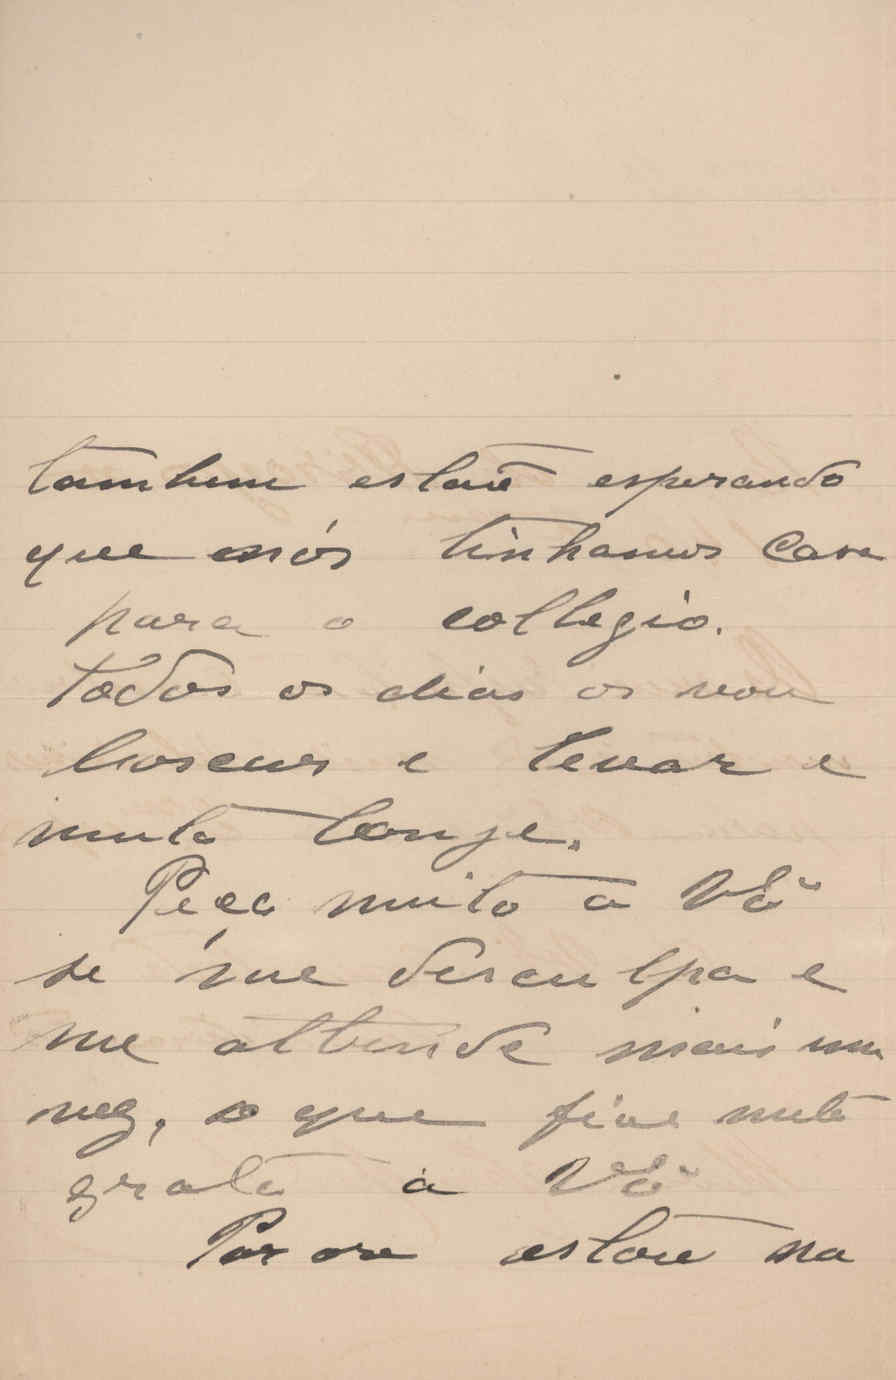 tambem estou esperando
que nós tinhamos Casa
para o collegio.
Todos os dias os vou
buscar e levar e
muito longe.
Peço muito a Vcê
se me desculpa e
me attende mais uma
vez, o que fico muito
grata a Vcê
Por ora estou na